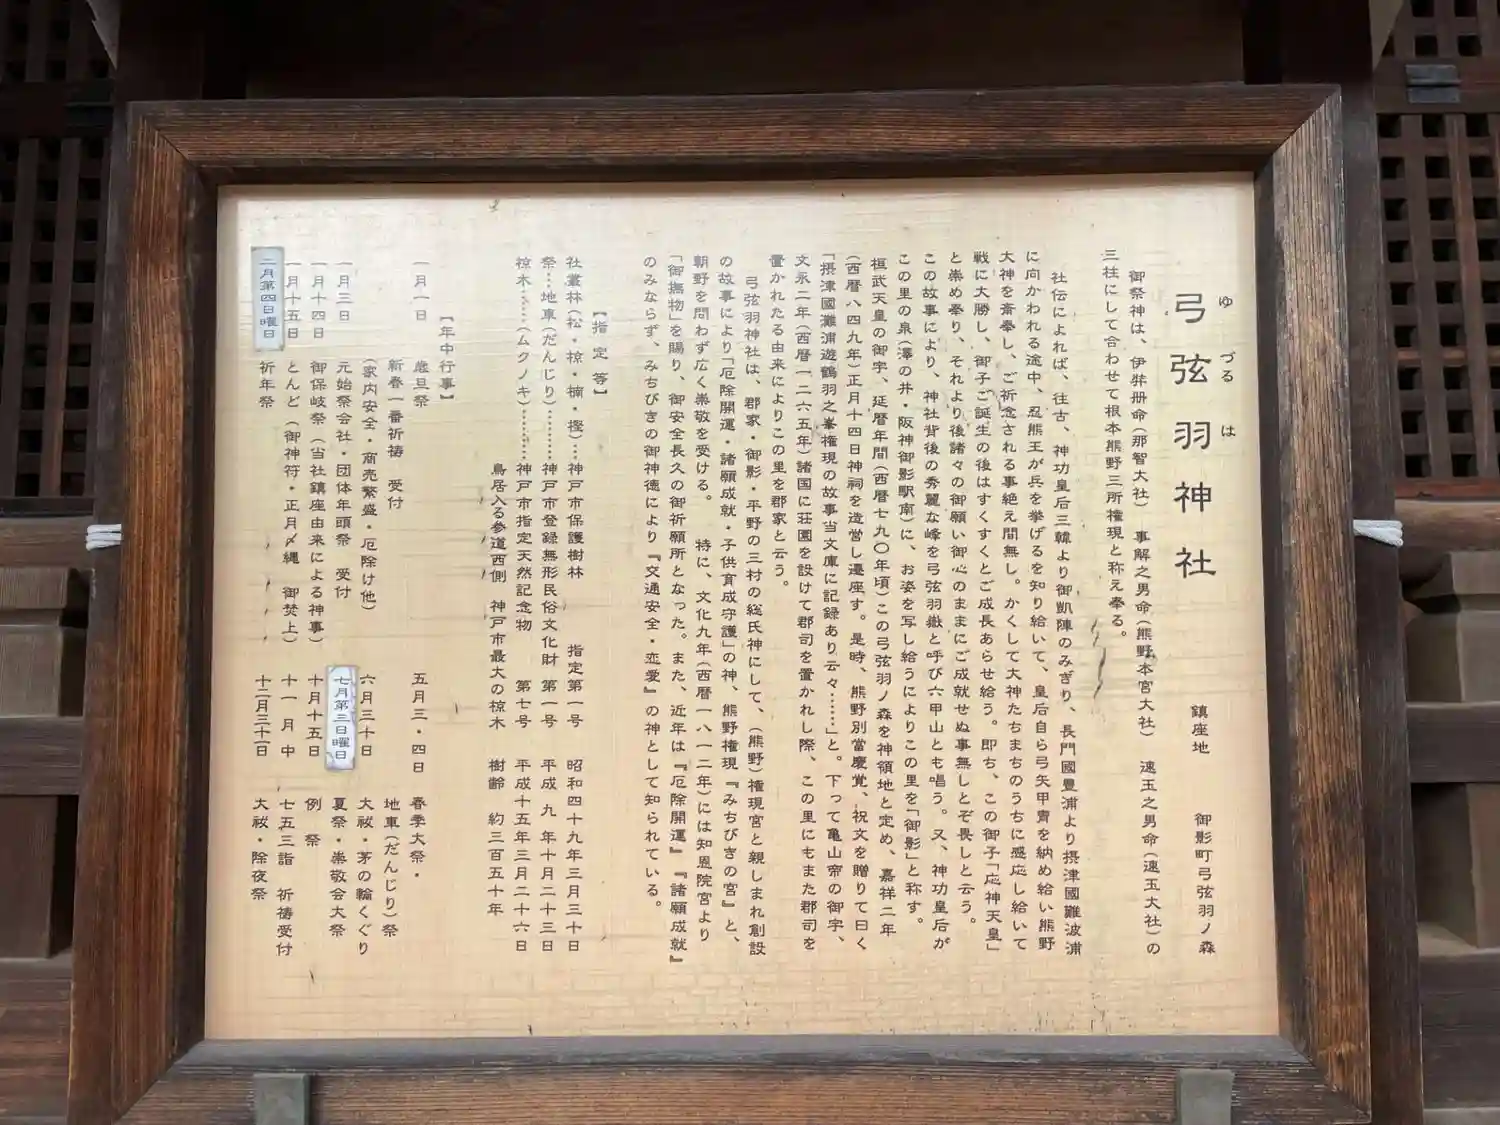 弓弦羽神社
ゆづるは
鎮座地　御影町弓弦羽ノ森
御祭神は、伊弉册命（那智大社）　事解之男命（熊野本宮大社）　速玉之男命（速玉大社）の
三柱にして合わせて根本熊野三所権現と称え奉る。
社伝によれば、往古、神功皇后三韓より御凱陣のみぎり、長門國豊浦より摂津國難波浦
に向かわれる途中、忍熊王が兵を挙げるを知り給いて、皇后自ら弓矢甲冑を納め給い熊野
大神を斎奉し、ご祈念される事絶え間無し。かくして大神たちまちのうちに感応し給いて
戦に大勝し、御子ご誕生の後はすくすくとご成長あらせ給う。即ち、この御子「応神天皇」
と崇め奉り、それより後諸々の御願い御心のままにご成就せぬ事無しとぞ畏しと云う。
この故事により、神社背後の秀麗な峰を弓弦羽嶽と呼び六甲山とも唱う。又、神功皇后が
この里の泉（澤の井・阪神御影駅南）に、お姿を写し給うによりこの里を「御影」と称す。
桓武天皇の御宇、延暦年間（西暦七九〇年頃）この弓弦羽ノ森を神領地と定め、嘉祥二年
（西暦八四九年）正月十四日神祠を造営し遷座す。是時、熊野別當慶覚、祝文を贈りて曰く
「摂津國灘浦遊鶴羽之峯権現の故事当文庫に記録あり云々……」と。下って亀山帝の御宇、
文永二年（西暦一二六五年）諸国に荘園を設けて郡司を置かれし際、この里にもまた郡司を
置かれたる由来によりこの里を郡家と云う。
弓弦羽神社は、郡家・御影・平野の三村の総氏神にして、（熊野）権現宮と親しまれ創設
の故事により「厄除開運・諸願成就・子供育成守護」の神、熊野権現『みちびきの宮』と、
朝野を問わず広く崇敬を受ける。　特に、文化九年（西暦一八一二年）には知恩院宮より
「御撫物」を賜り、御安全長久の御祈願所となった。また、近年は『厄除開運』『諸願成就』
のみならず、みちびきの御神徳により『交通安全・恋愛』の神として知られている。
【指定等】
社叢林（松・椋・楠・樫）…神戸市保護樹林　指定第一号　昭和四十九年三月三十日
祭…地車（だんじり）………神戸市登録無形民俗文化財　第一号　平成九年十月二十三日
椋木……（ムクノキ）………神戸市指定天然記念物　第七号　平成十五年三月二十六日
鳥居入る参道西側　神戸市最大の椋木　樹齢　約三百五十年
【年中行事】
一月一日　歳旦祭
新春一番祈祷　受付
（家内安全・商売繁盛・厄除け他）
一月三日　元始祭会社・団体年頭祭　受付
一月十四日　御保岐祭（当社鎮座由来による神事）
一月十五日　とんど（御神符・正月〆縄　御焚上）
二月第四日曜日　祈年祭
五月三・四日　春季大祭・
地車（だんじり）祭
六月三十日　大祓・茅の輪くぐり
七月第三日曜日　夏祭・崇敬会大祭
十月十五日　例　祭
十一月中　七五三詣　祈祷受付
十二月三十一日　大祓・除夜祭